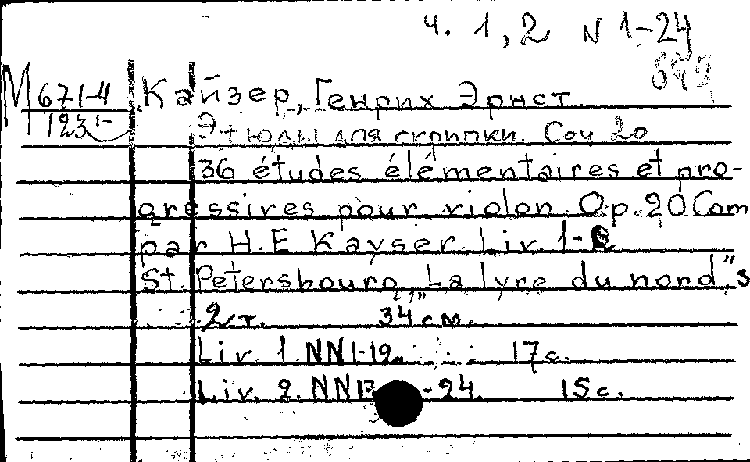 ч. 1, 2 N 1-24
М 671-4
123
Кайзер, Генрих Эрнст
Этюды для скрипки. Соч 20
36 études élémentaires et pro-
gressives pour violon. Op. 20 Com
par H. E Kayser. Liv. 1-2
St. Petersbourg, "La lyre du nord", s
2 т. 34 см.
Liv. 1. NN1-12. 17 с.
Liv. 2. NN13-24. 15 с.